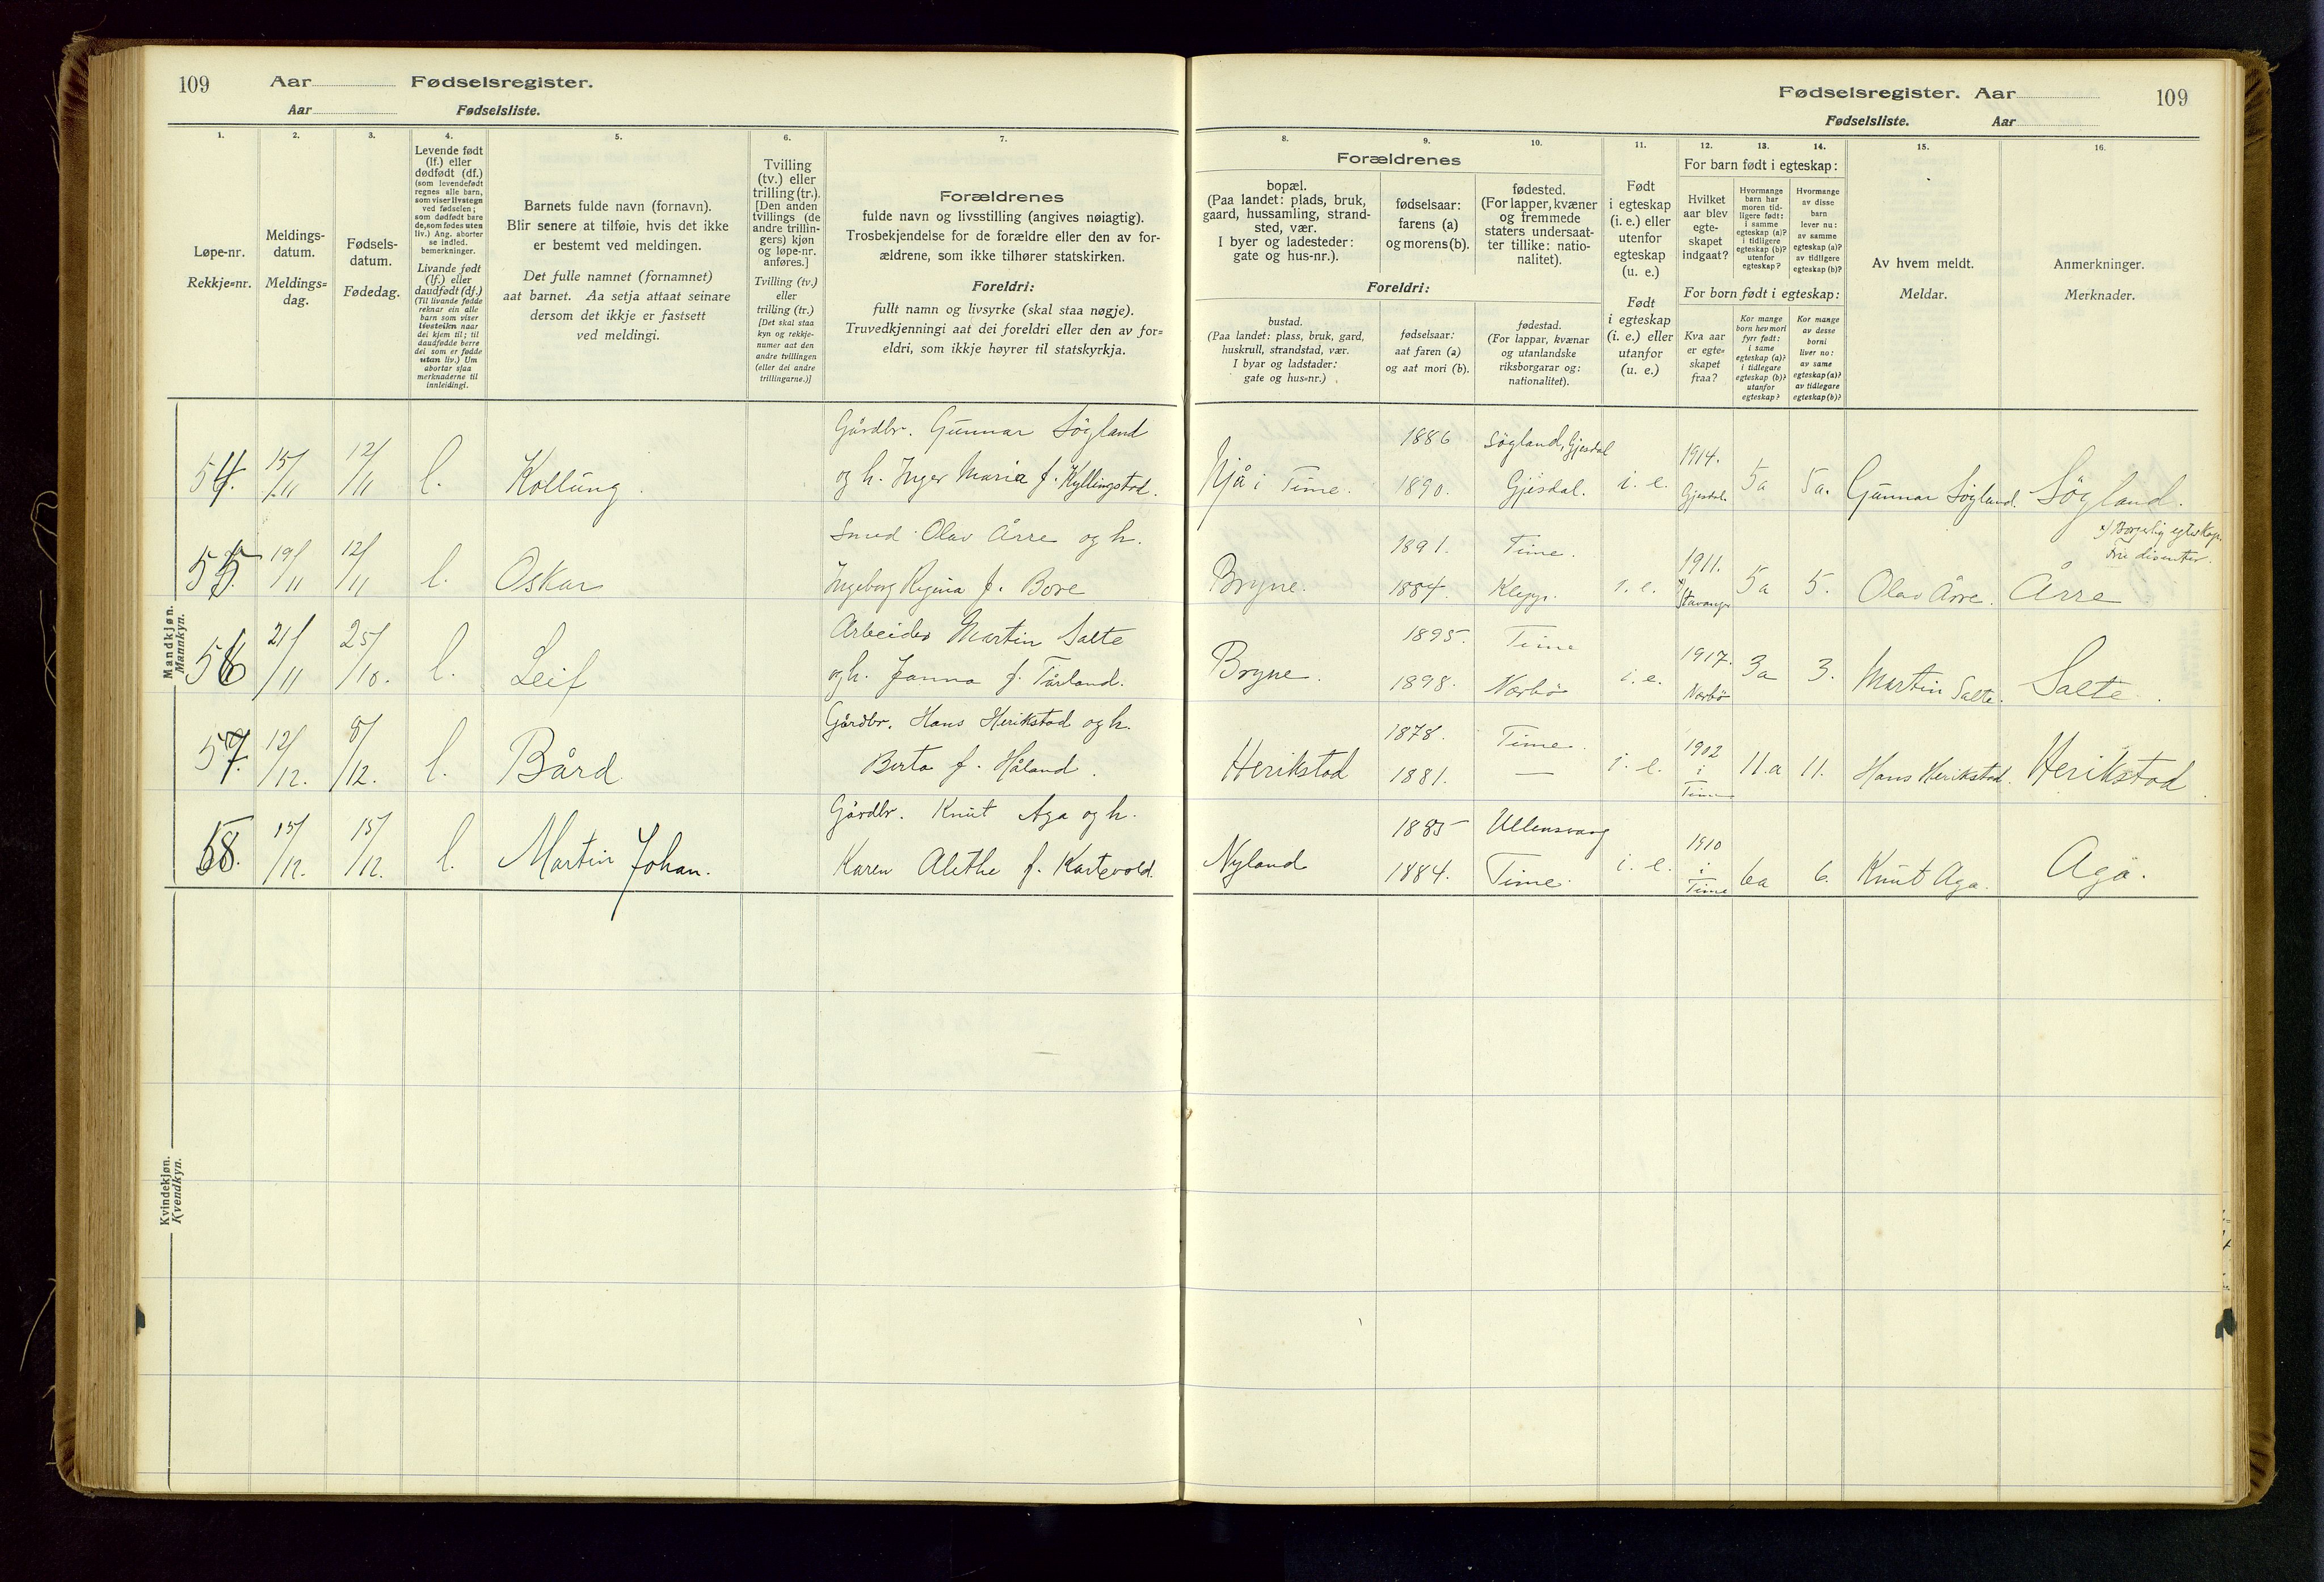 109 Aar Fødselsregister.
Aar Fødselsliste.
Fødselsregister. Aar 109
Fødselsliste. Aar
1.
Løpe-nr.
Rekkje=nr.
2.
Meldings-
datum.
Meldings=
dag.
3.
Fødsels-
datum.
Fødedag.
4.
Levende født
(lf.) eller
dødfødt (df.)
(som levendefødt
regnes alle barn,
som viser livstegn
ved fødselen;
som dødfødt bare
de, som fødes uten
liv.) Ang. aborter
se indled.
bemerkninger.
Livande født
(lf.) eller
daudfødt (df.)
(Til livande fødde
reknar ein alle
barn som viser
livsteikn naar
dei kjem til; til
daudfødde berre
dei som er fødde
utan liv.) Um
abortar sjaa
merknaderne til
innleidingi.
5.
Barnets fulde navn (fornavn).
Blir senere at tilføie, hvis det ikke
er bestemt ved meldingen.
Det fulle namnet (fornamnet)
aat barnet. Aa setja attaat seinare
dersom det ikkje er fastsett
ved meldingi.
6.
Tvilling
(tv.) eller
trilling (tr.).
[Den anden
tvillings (de
andre trillin-
gers) kjøn
og løpe-nr.
anføres.]
Tvilling (tv.)
eller
trilling (tr.)
[Det skal staa
kyn og rekkje-
numer aat den
andre tvillingen
(eller dei andre
trillingarne.)]
7.
Forældrenes
fulde navn og livsstilling (angives nøiagtig).
Trosbekjendelse for de forældre eller den av for-
ældrene, som ikke tilhører statskirken.
Foreldri:
fullt namn og livsyrke (skal staa nøgje).
Truvedkjenningi aat dei foreldri eller den av for=
eldri, som ikkje høyrer til statskyrkja.
8.
Forældrenes
bopæl.
(Paa landet: plads, bruk,
gaard, hussamling, strand-
sted, vær.
I byer og ladesteder:
gate og hus-nr.).
Foreldri:
bustad.
(Paa landet: plass, bruk, gard,
huskrull, strandstad, vær.
I byar og ladstader:
gate og hus=nr.)
9.
fødselsaar:
farens (a)
og morens (b).
fødselsaar:
aat faren (a)
og aat mori (b).
10.
fødested.
(For lapper, kvæner
og fremmede
staters undersaat-
ter tillike: natio-
nalitet).
fødestad.
(For lappar, kvænar
og utanlandske
riksborgarar og:
nationalitet).
11.
Født
i egteskap
(i. e.) eller
utenfor
egteskap
(u. e.)
Født
i egteskap
(i. e.) eller
utanfor
(u. e.)
12. 13. 14.
For barn født i egteskap:
Hvilket
aar blev
egte-
skapet
indgaat?
Hvormange
barn har
moren tid-
ligere født:
i samme
egteskap (a)?
i tidligere
egteskap (b)?
utenfor
egteskap?
Hvormange
av disse
barn
lever nu:
av samme
egteskap (a)?
av tidligere
egteskap (b)?
For born født i egteskap:
Kva aar
er egte-
skapet
fraa?
Kor mange
born hev mori
fyrr født:
i same
egteskap (a)?
i tidlegare
egteskap (b)?
utanfor
egteskap?
Kor mange
av desse
borni
liver no:
av same
egteskap (a)?
av tidlegare
egteskap (b)?
15.
Av hvem meldt.
Meldar.
16.
Anmerkninger.
Merknader.
Mandkjøn.
Mannkyn.
54. 15/11 12/11 l. Kollung.
Gårdbr. Gunnar Søgland
og h. Inger Maria f. Kyllingstad.
Njå i Time. 1886 Søgland, Gjesdal
1890. Gjesdal. i. e. 1914. Gjesdal. 5a 5a. Gunnar Søgland. Søgland.
55. 19/11 12/11 l. Oskar
Smed Olav Årre og h.
Ingeborg Regina f. Bore
Bryne. 1891. Time.
1884. Klepp. i. e. 1911. x) Stavanger 5a 5. Olav Årre. Årre
x) Borgerlig egteskap.
Fri disenter.
56 21/11 25/10. l. Leif
Arbeider Martin Salte
og h. Janna f. Tårland.
Bryne. 1895. Time
1898. Nærbø i. e. 1917. Nærbø 3a 3. Martin Salte. Salte.
57. 12/12. 8/12. l. Bård
Gårdbr. Hans Herikstad og h.
Berta f. Håland.
Herikstad 1878. Time.
1881. — i. e. 1902 i Time 11.a 11. Hans Herikstad. Herikstad
58. 15/12. 15/12. l. Martin Johan.
Gårdbr. Knut Aga og h.
Karen Alethe f. Kartevold.
Nyland 1885 Ullensvang
1884. Time. i. e. 1910 i Time 6a 6. Knut Aga. Aga.
Kvindekjøn.
Kvendkyn.